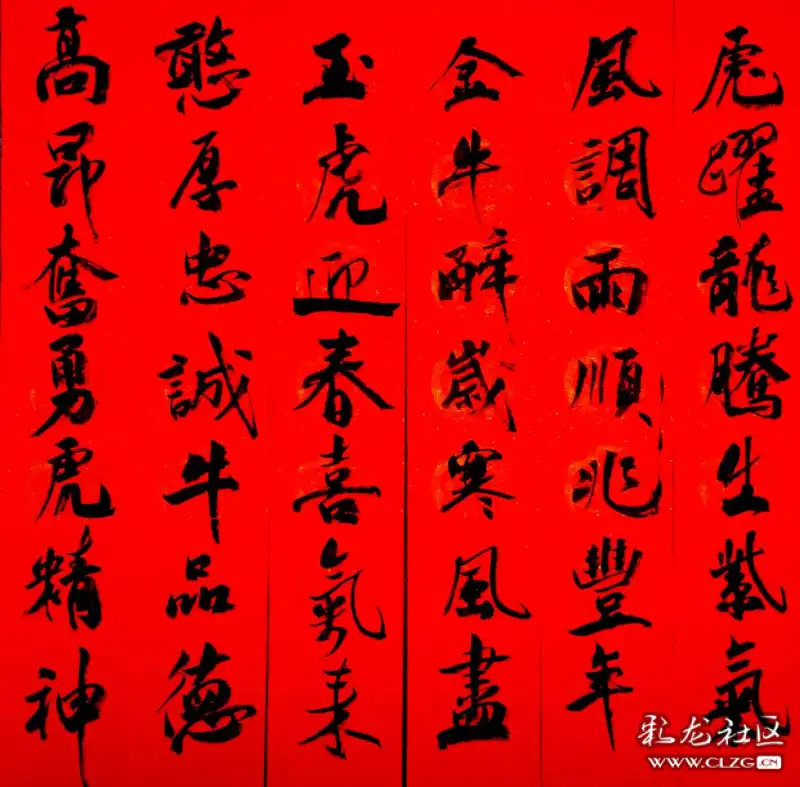 虎躍龍騰生紫氣
風調雨順兆豐年
金牛辭歲寒風盡
玉虎迎春喜氣來
憨厚忠誠牛品德
高昂奮勇虎精神
彩龙社区
WWW.CLZG.CN